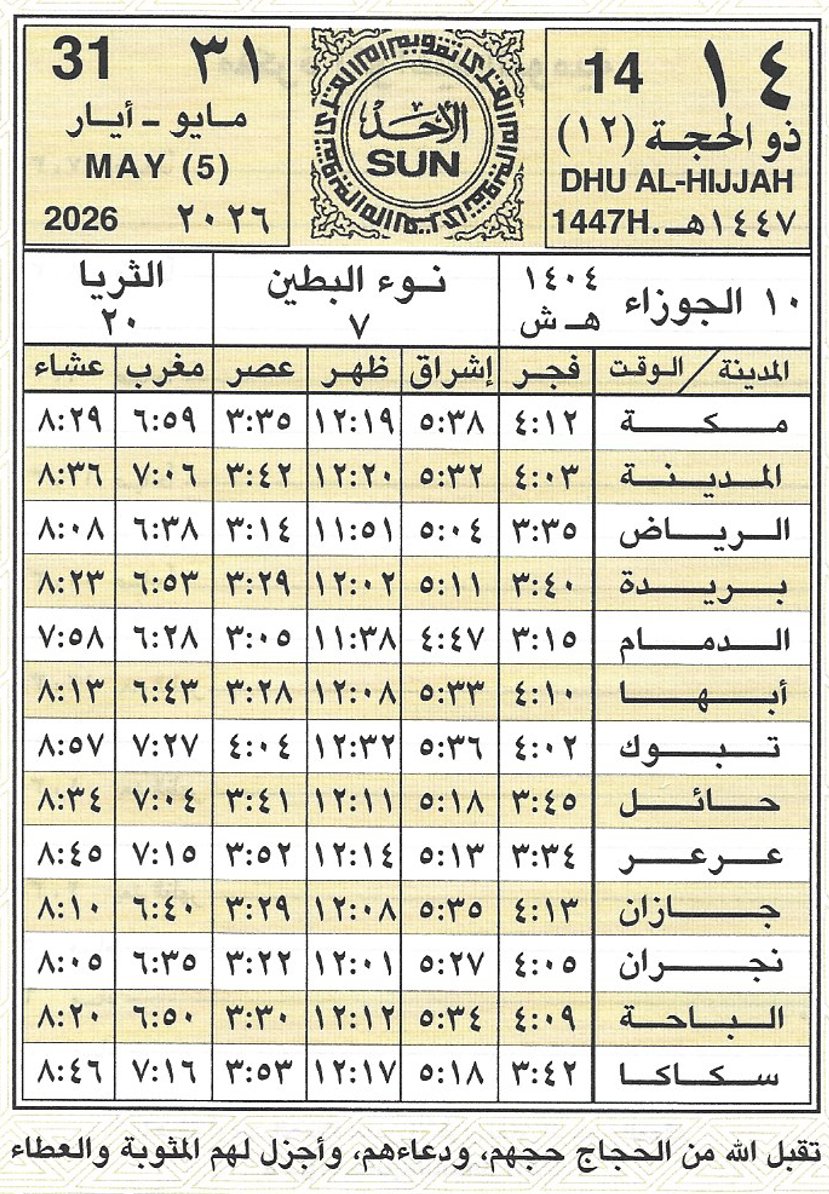 ١٤ 14
ذو الحجة (١٢)
DHU AL-HIJJAH
1447H. ١٤٤٧هـ
تقويم أم القرى
الأحد
SUN
٣١ 31
مايو - أيار
MAY (5)
٢٠٢٦ 2026
١٠ الجوزاء ١٤٠٤ هـ ش
نوء البطين ٧
الثريا ٢٠
المدينة / الوقت فجر إشراق ظهر عصر مغرب عشاء
مكة ٤:١٢ ٥:٣٨ ١٢:١٩ ٣:٣٥ ٦:٥٩ ٨:٢٩
المدينة ٤:٠٣ ٥:٣٢ ١٢:٢٠ ٣:٤٢ ٧:٠٦ ٨:٣٦
الرياض ٣:٣٥ ٥:٠٤ ١١:٥١ ٣:١٤ ٦:٣٨ ٨:٠٨
بريدة ٣:٤٠ ٥:١١ ١٢:٠٢ ٣:٢٩ ٦:٥٣ ٨:٢٣
الدمام ٣:١٥ ٤:٤٧ ١١:٣٨ ٣:٠٥ ٦:٢٨ ٧:٥٨
أبها ٤:١٠ ٥:٣٣ ١٢:٠٨ ٣:٢٨ ٦:٤٣ ٨:١٣
تبوك ٤:٠٢ ٥:٣٦ ١٢:٣٢ ٤:٠٤ ٧:٢٧ ٨:٥٧
حائل ٣:٤٥ ٥:١٨ ١٢:١١ ٣:٤١ ٧:٠٤ ٨:٣٤
عرعر ٣:٣٤ ٥:١٣ ١٢:١٤ ٣:٥٢ ٧:١٥ ٨:٤٥
جازان ٤:١٣ ٥:٣٥ ١٢:٠٨ ٣:٢٩ ٦:٤٠ ٨:١٠
نجران ٤:٠٥ ٥:٢٧ ١٢:٠١ ٣:٢٢ ٦:٣٥ ٨:٠٥
الباحة ٤:٠٩ ٥:٣٤ ١٢:١٢ ٣:٣٠ ٦:٥٠ ٨:٢٠
سكاكا ٣:٤٢ ٥:١٨ ١٢:١٧ ٣:٥٣ ٧:١٦ ٨:٤٦
تقبل الله من الحجاج حجهم، ودعاءهم، وأجزل لهم المثوبة والعطاء